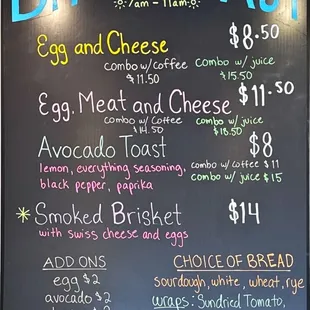 7am – 11am
Egg and Cheese $8.50
combo w/coffee $11.50
combo w/ juice $15.50
Egg, Meat and Cheese $11.50
combo w/ coffee $14.50
combo w/ juice $18.50
Avocado Toast $8
lemon, everything seasoning,
black pepper, paprika
combo w/coffee $11
combo w/ juice $15
*Smoked Brisket $14
with swiss cheese and eggs
ADD ONS
egg $2
avocado $2
CHOICE OF BREAD
sourdough, white, wheat, rye
wraps: Sundried Tomato,